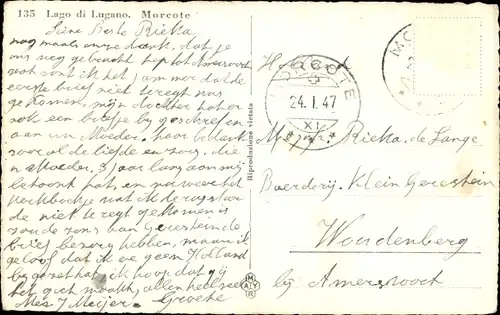 135 Lago di Lugano. Morcote
Lieve Beste Riekа
nog maals onze dank, dat je
ons nog gebracht hep tot Amersvoord
wat vont ik het jammer dat de
eerste brief niet teregt was
gekomen, mijn dochter had er
ook een briefje bij geschreven
aan uw Moeder. Voor
vooral de liefde en zorg, die
u Moeder, 3 jaar lang aan mij
betoont hat, en nu weer het
kerkboekje wat ik de
niet te regt gekomen is
zoude zons van Geresteinde
brief bezorg hebben, maar ik
geloof dat ik ge geen Holland
bij gezet hat, ik hoop dat gij
het goet maakt, allen heel veel
Mev. J Meijer. Groete
Riproduzione vietata
MORCOTE
24. I. 47
XI
MO
Holland
Mej. Rieka de Lange
Boerderij. Klein Gerestein
Woudenberg
bij Amersvoort
MAYR